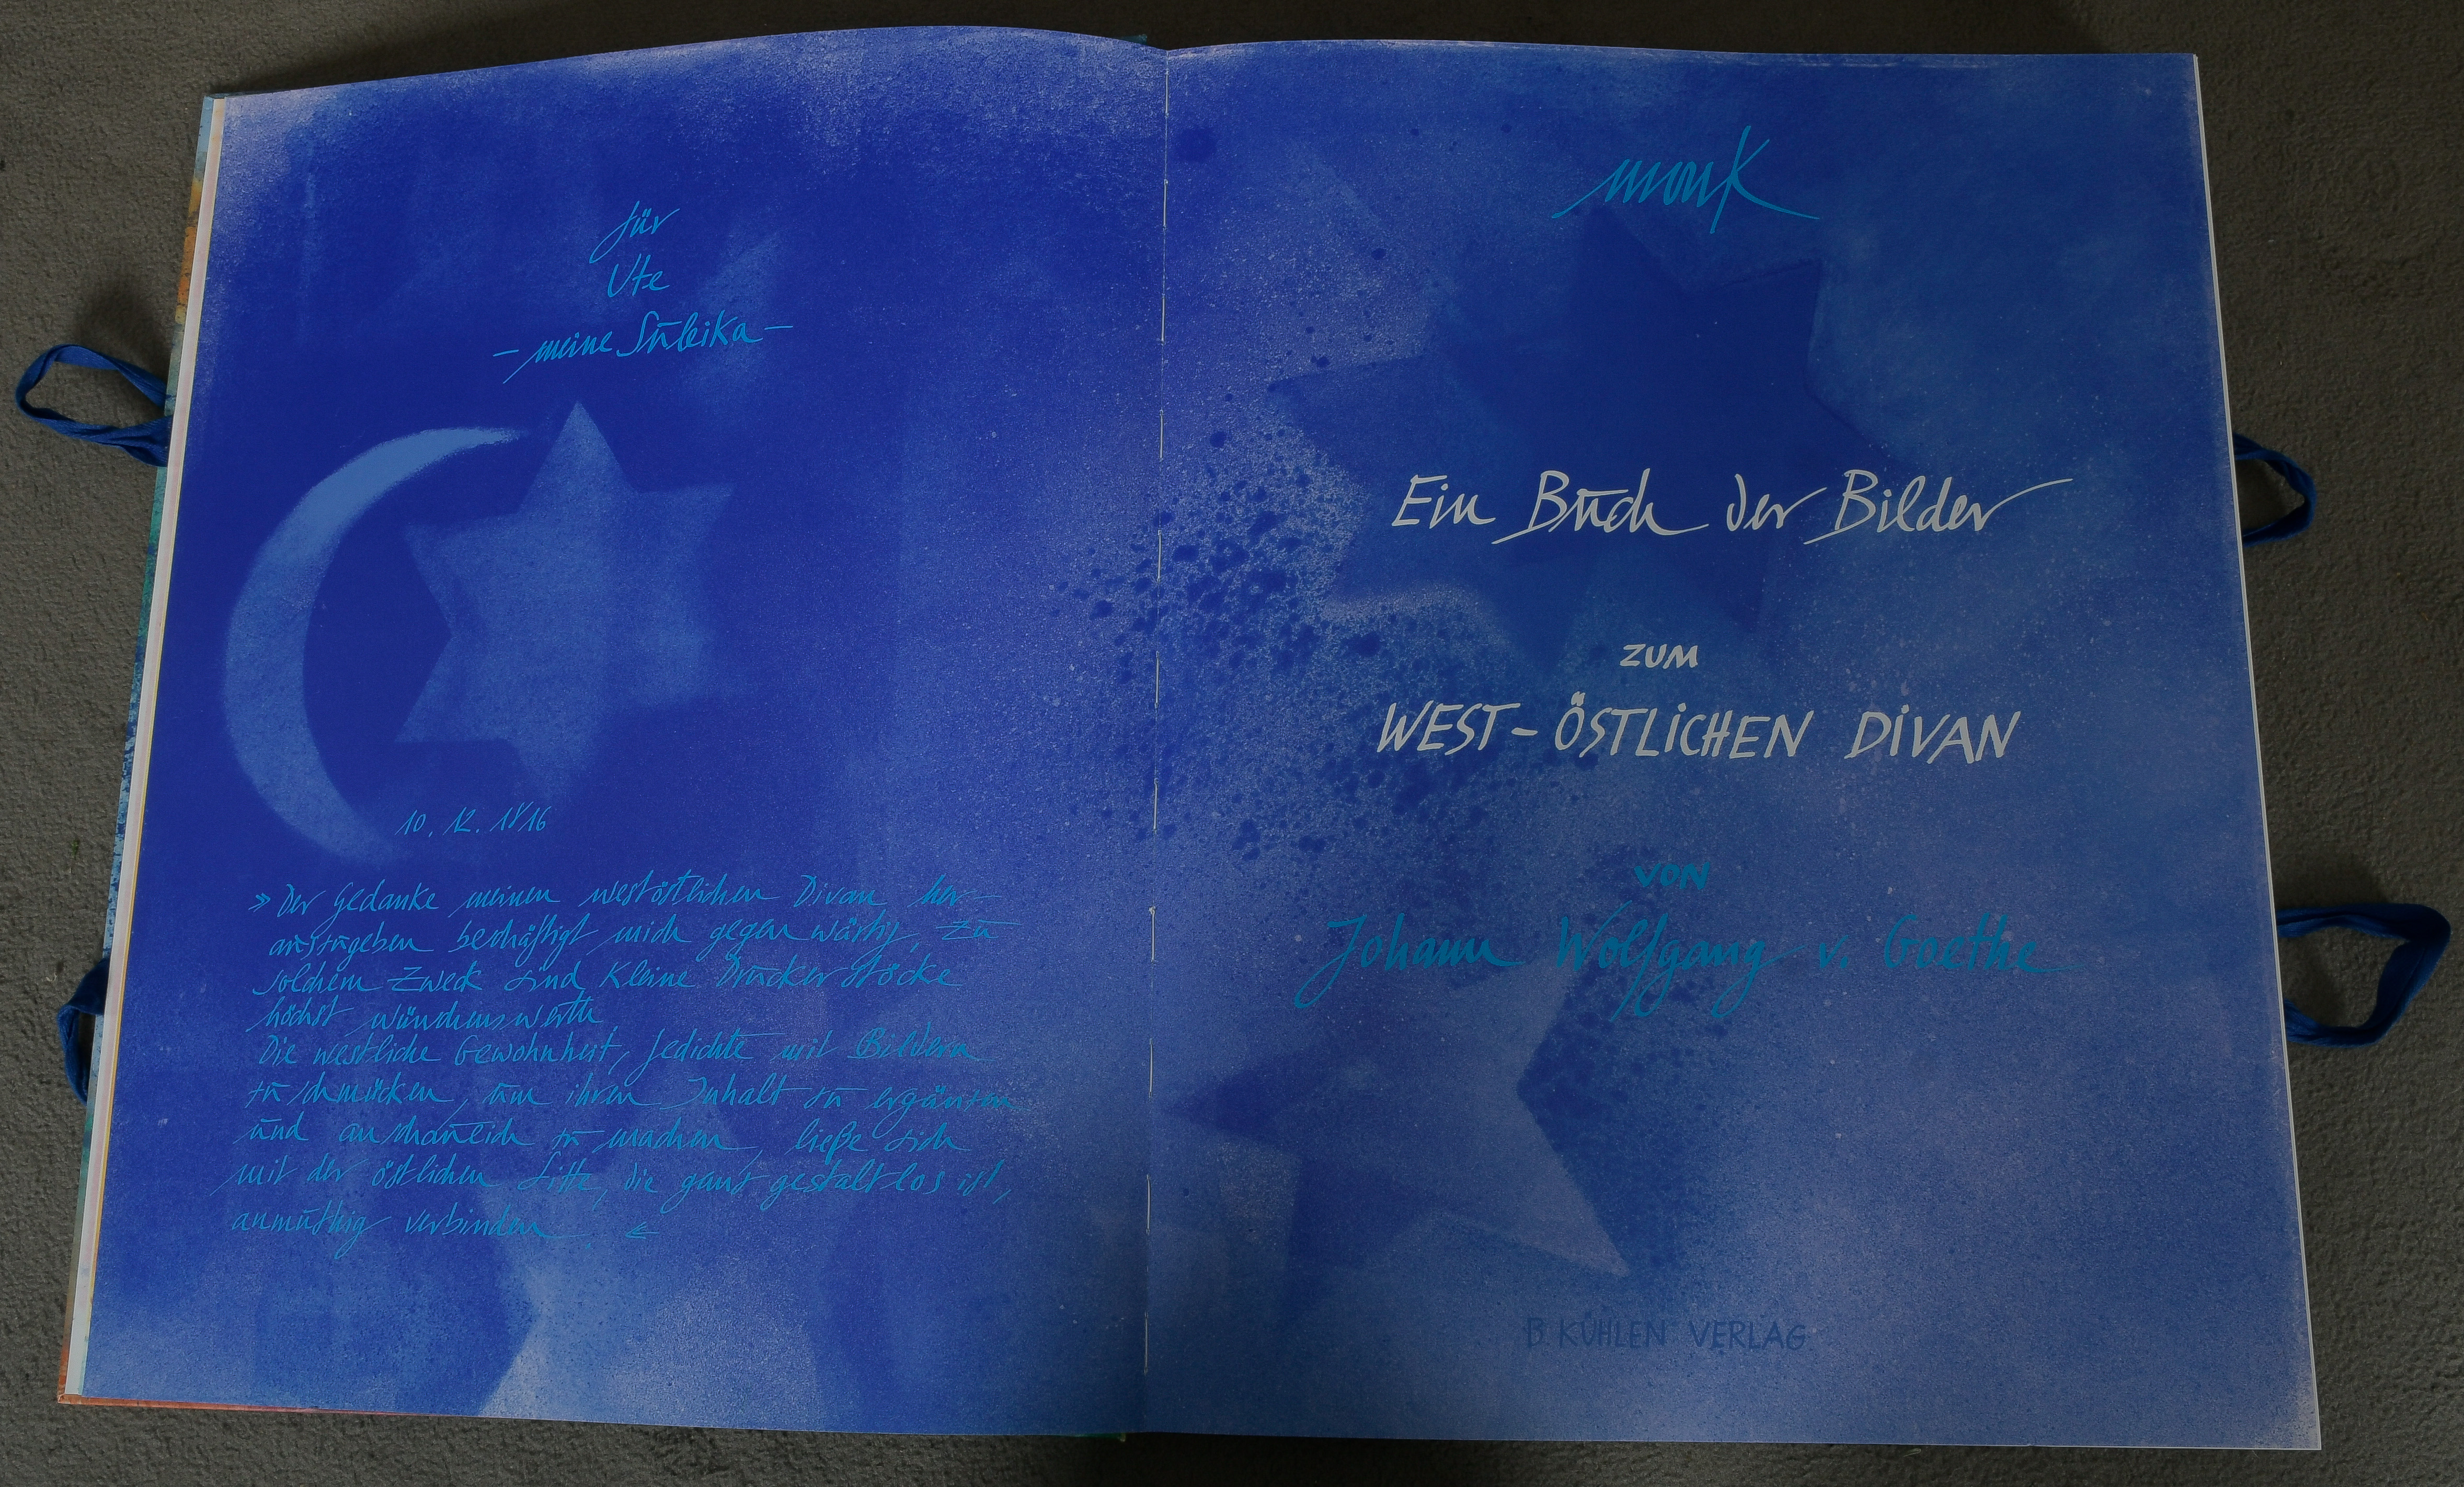 für
Ute
- meine Suleika -
10. 12. 1816
» Der Gedanke meinen westöstlichen Divan her-
auszugeben beschäftigt mich gegenwärtig, zu
solchem Zweck sind kleine Druckerstöcke
höchst wünschenswerth
Die westliche Gewohnheit, Gedichte mit Bildern
zu schmücken, um ihren Inhalt zu ergänzen
und anschaulich zu machen, ließe sich
mit der östlichen Sitte, die ganz gestaltlos ist,
anmuthig verbinden. «
monk
Ein Buch der Bilder
ZUM
WEST-ÖSTLICHEN DIVAN
VON
Johann Wolfgang v. Goethe
B. KÜHLEN VERLAG